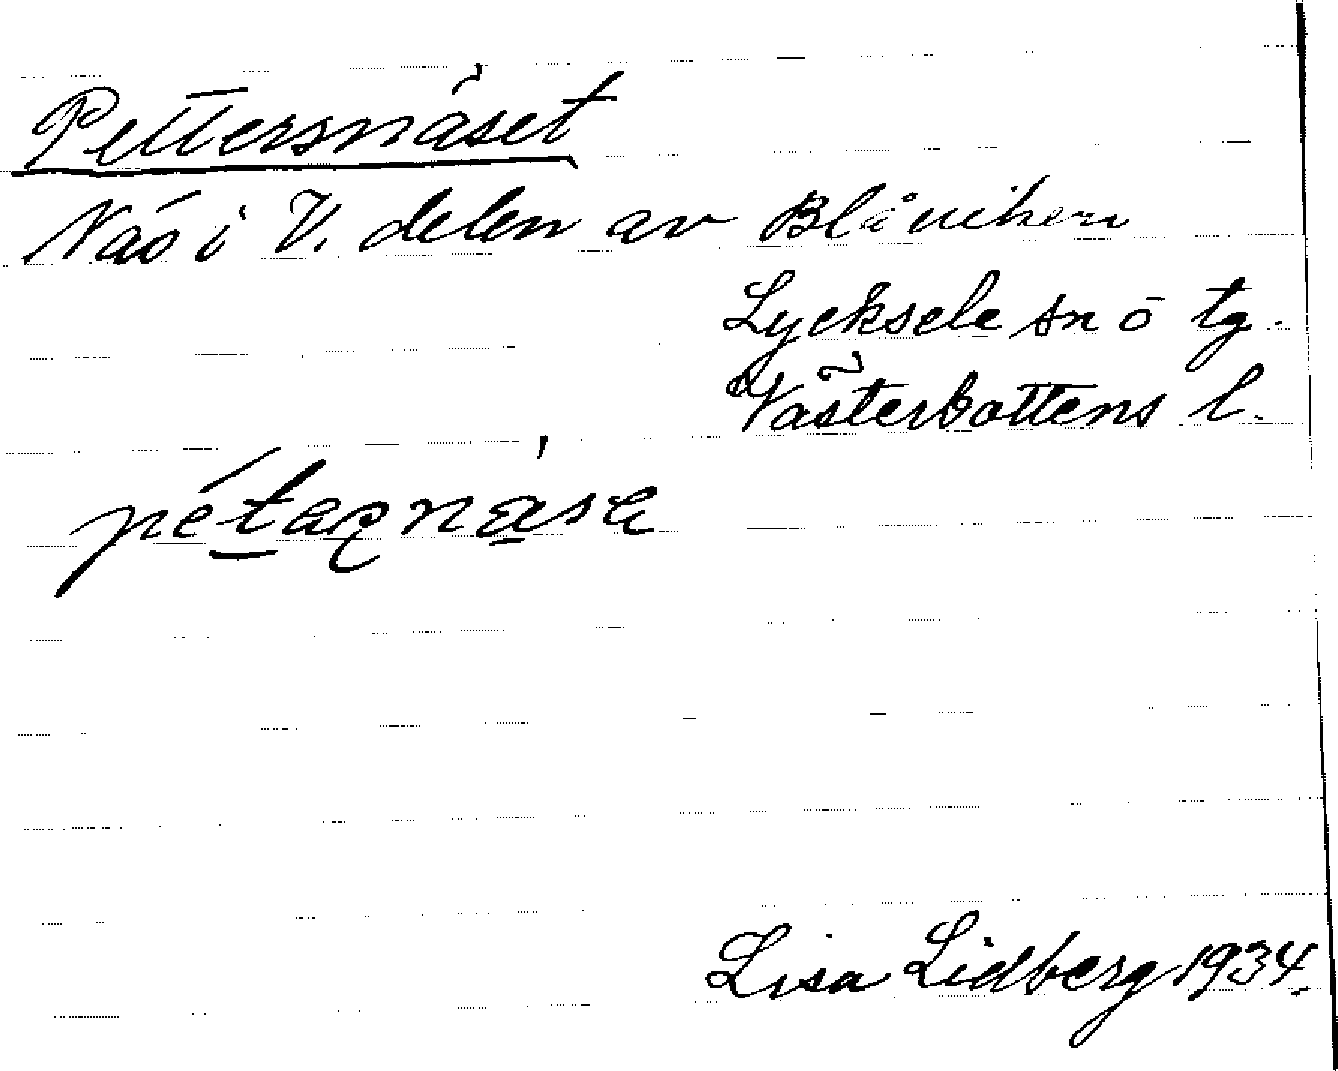 Pettersnäset
Näs i V. delen av Blåviken
Lycksele sn o tg.
Västerbottens l.
Lisa Lidberg 1934.